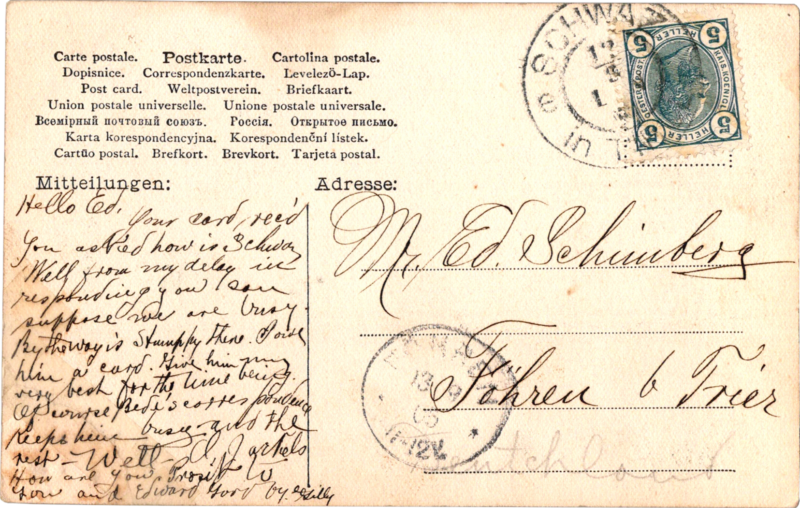 Carte postale. Postkarte. Cartolina postale.
Dopisnice. Correspondenzkarte. Levelező-Lap.
Post card. Weltpostverein. Briefkaart.
Union postale universelle. Unione postale universale.
Всемірный почтовый союзъ. Россія. Открытое письмо.
Karta korespondencyjna. Korespondenční lístek.
Cartão postal. Brefkort. Brevkort. Tarjeta postal.
Mitteilungen:
Adresse:
Hello Ed.
Your card, rec'd
You asked how is Schwaz
Well from my delay in
responding you can
suppose we are busy.
By the way is Stumppy there.
him a card. Give him my
very best for the time being.
Of course Bede's correspondence
keeps him busy and the
rest - Well -
How are you Prosit
you and Edward
Mr. Ed. Schimberg
Föhren b Trier
Deutchland
SCHWAZ
in TIROL
5 HELLER 5
KAIS. KOENIGL.
OESTERR. POST
5 HELLER 5
13
11-12V.